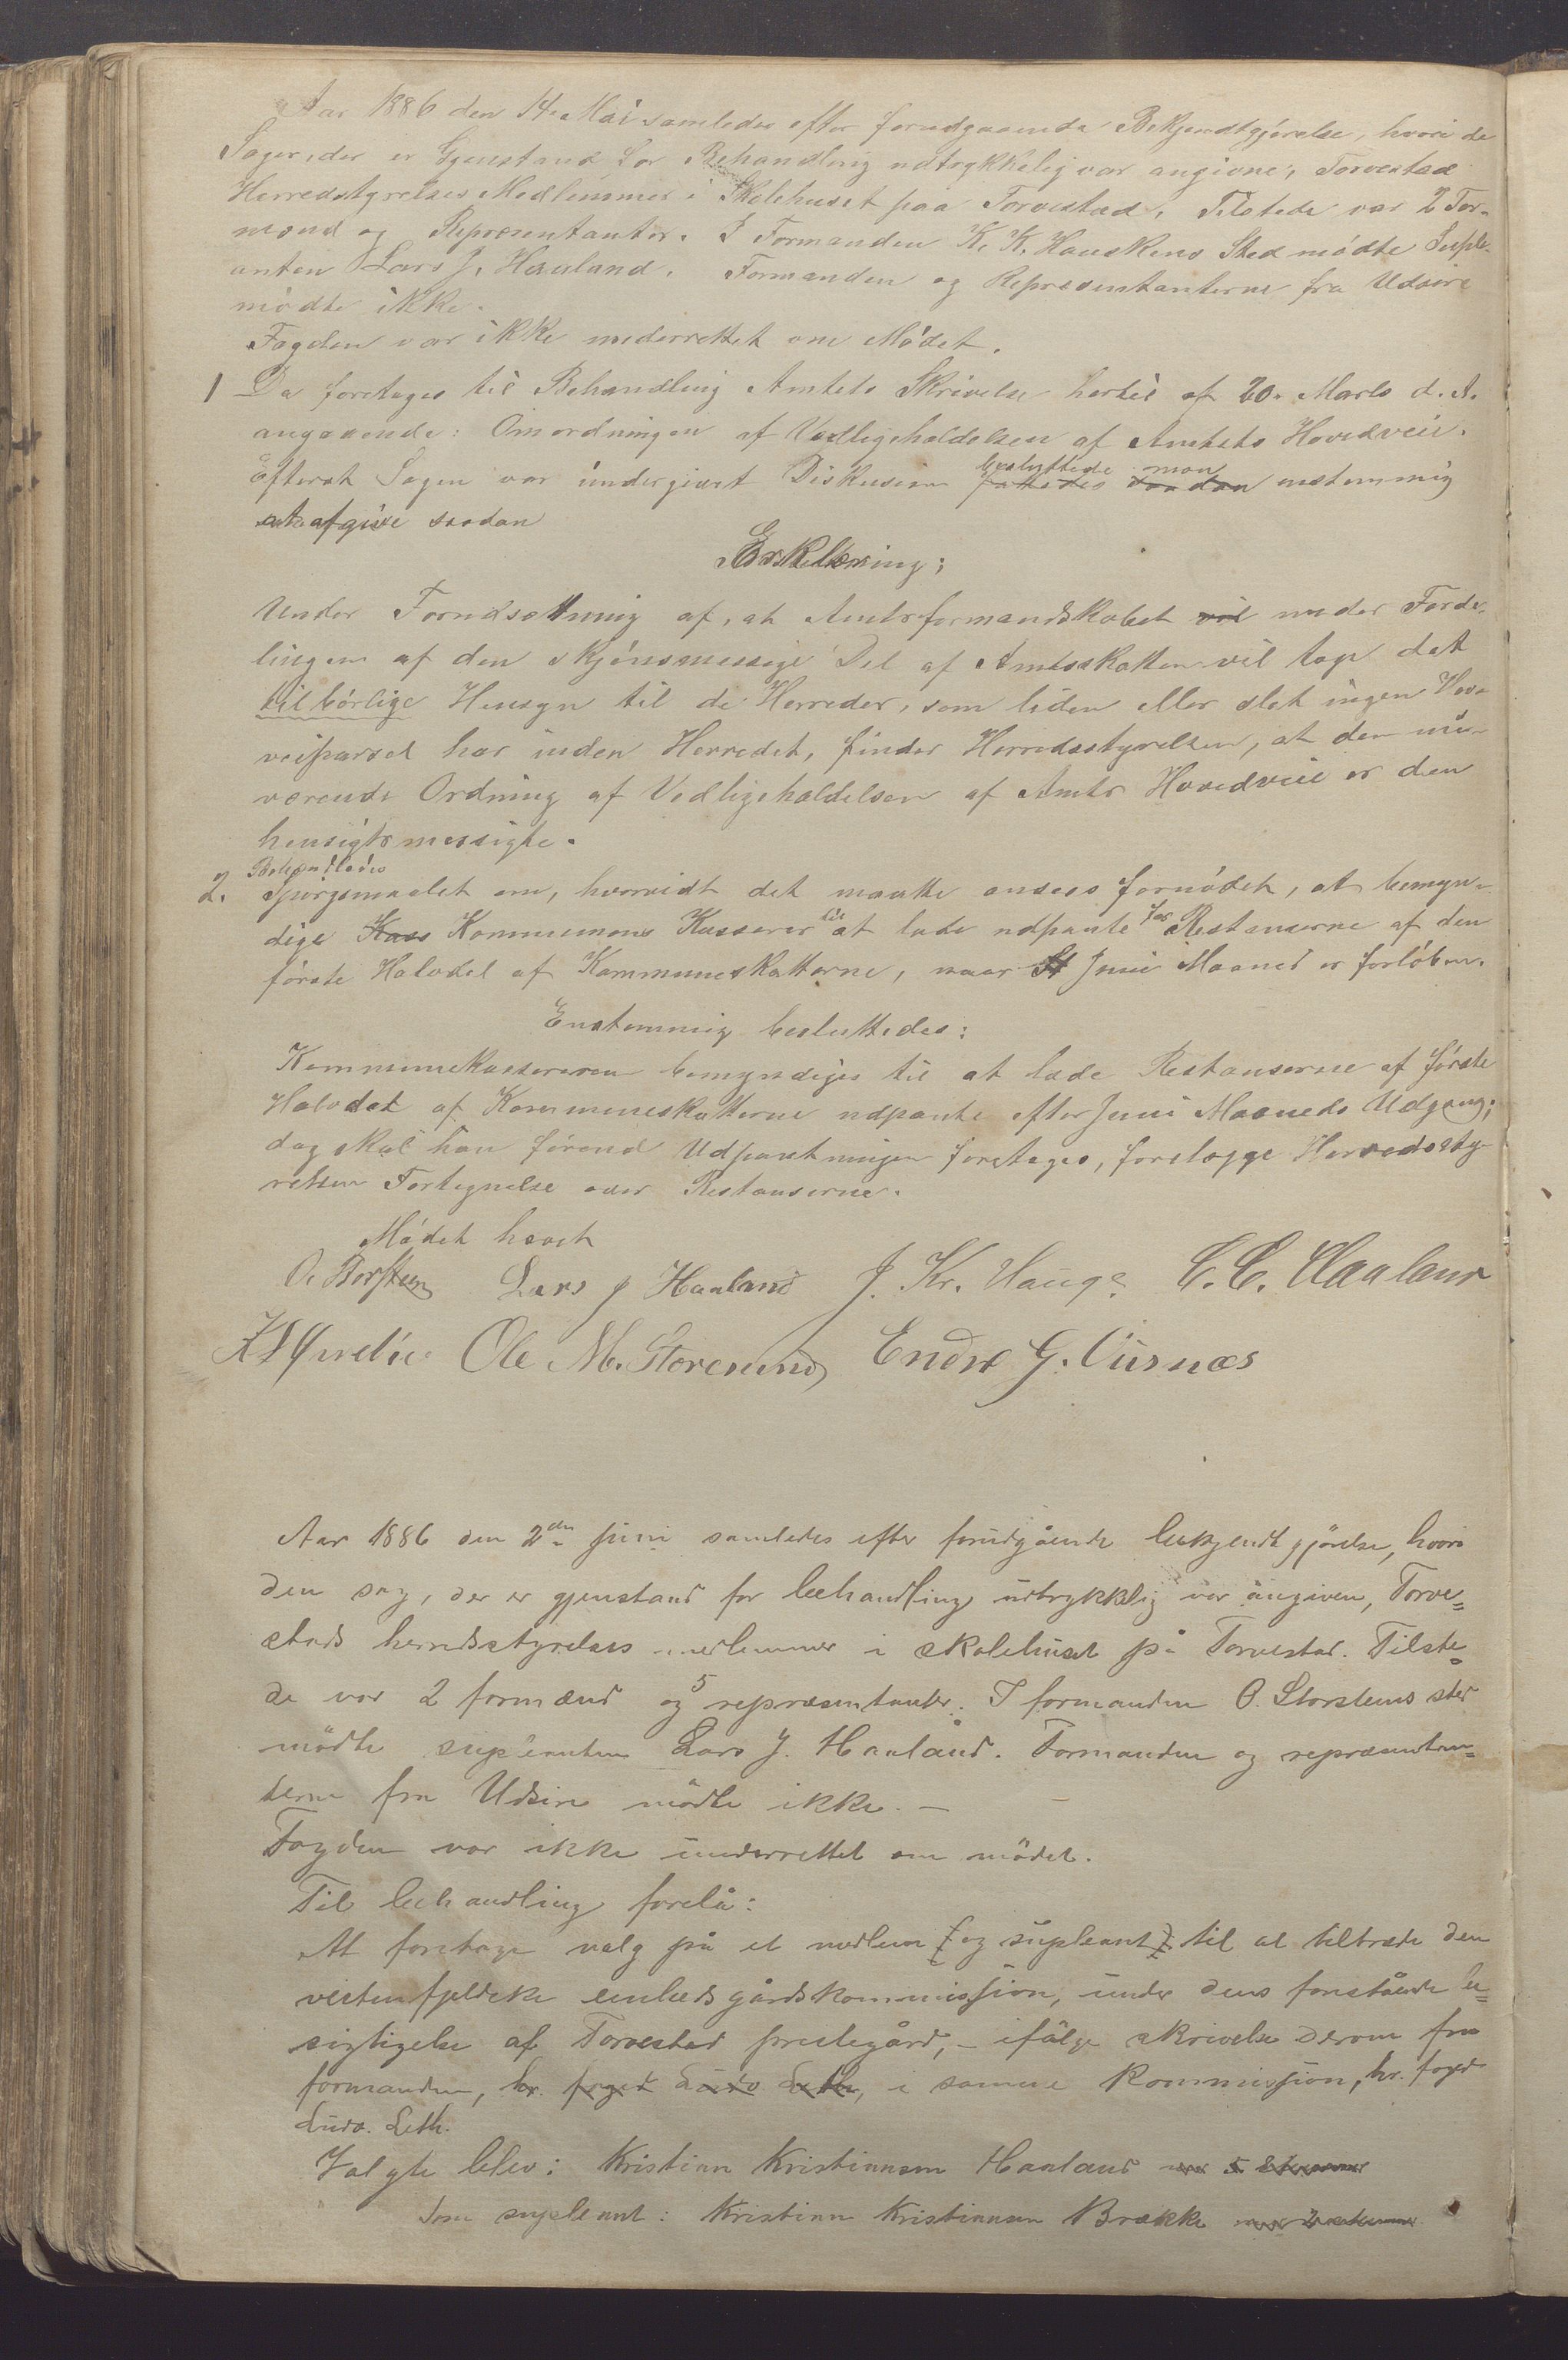 Aar 1886 den 14. Mai samledes efter forudgaaende Bekjendtgjørelse, hvori de
Sager, der er Gjenstand for Behandling udtrykkelig var angivne, Torvestad
Herredsstyrelses Medlemmer i Skolehuset paa Torvestad. Tilstede var 2 For-
mænd og Repræsentanter. I Formanden K. K. Hauskens Sted mødte Suple-
anten Lars J. Haaland. Formanden og Repræsentanterne fra Udsire
mødte ikke.
Fogden var ikke underrettet om Mødet.
1 Da foretages til Behandling Amtets Skrivelse hertil af 20. Marts d. A.
angaaende: Omordningen af Vedligeholdelsen af Amtets Hovedveie.
Efterat Sagen var undergivet Diskusion fattedes saadan besluttede man enstemmig
at afgive saadan
Erklæring;
Under Forudsætning af, at Amtsformandskabet vil under Forde-
lingen af den skjønsmessige Del af Amtsskatten vil tage det
tilbørlige Hensyn til de Herreder, som liden eller slet ingen Hov-
veiparsel har inden Herredet, finder Herredsstyrelsen, at den nu-
værende Ordning af Vedligeholdelsen af Amts Hovedveie er den
hensigtsmessigte.
Behandledes
2. Spørgsmaalet om, hvorvidt det maatte ansees fornødet, at bemyn-
dige Kass Kommunens Kasserer til at lade udpante for Restanserne af den
første Halvdel af Kommuneskatterne, naar St Juni Maaned er forløben.
Enstemmig besluttedes:
Kommunekassereren bemyndiges til at lade Restanserne af første
Halvdel af Kommuneskatterne udpante efter Juni Maaneds Udgang;
dog skal han førend Udpantningen foretages, forelægge Herredssty-
relsen Fortegnelse over Restanserne.
Mødet hævet
O. Storsteen Lars J Haaland J. Kr. Hauge. C. C. Haaland
Ole M. Storesund Endre G. Viisnæs
Aar 1886 den 2den juni samledes efter forudgående bekjendtgjørelse, hvori
den sag, der er gjenstand for behandling udtrykklig var angiven, Torve=
stads herredsstyrelses medlemmer i skolehuset på Torvestad. Tilste=
de var 2 formænd og 5 repræsentanter. I formanden O. Storstens sted
mødte supleanten Lars J. Haaland. Formanden og repræsentan=
terne fra Udsire mødte ikke. —
Fogden var ikke underrettet om mødet.
Til behandling forelå:
At foretage valg på et medlem (og supleant) til at tiltræde den
vestenfjeldske embedsgårdskommission, under dens forestående be=
sigtigelse af Torvestad prestegård, — ifølge skrivelse derom fra
formanden, hr. foged Ludv Leth, i samme kommission, hr. fogd
Ludv. Leth.
Valgte blev: Kristian Kristiansen Haaland med 5 stemmer
Som supleant: Kristian Kristiansen Brække med 2 stemmer